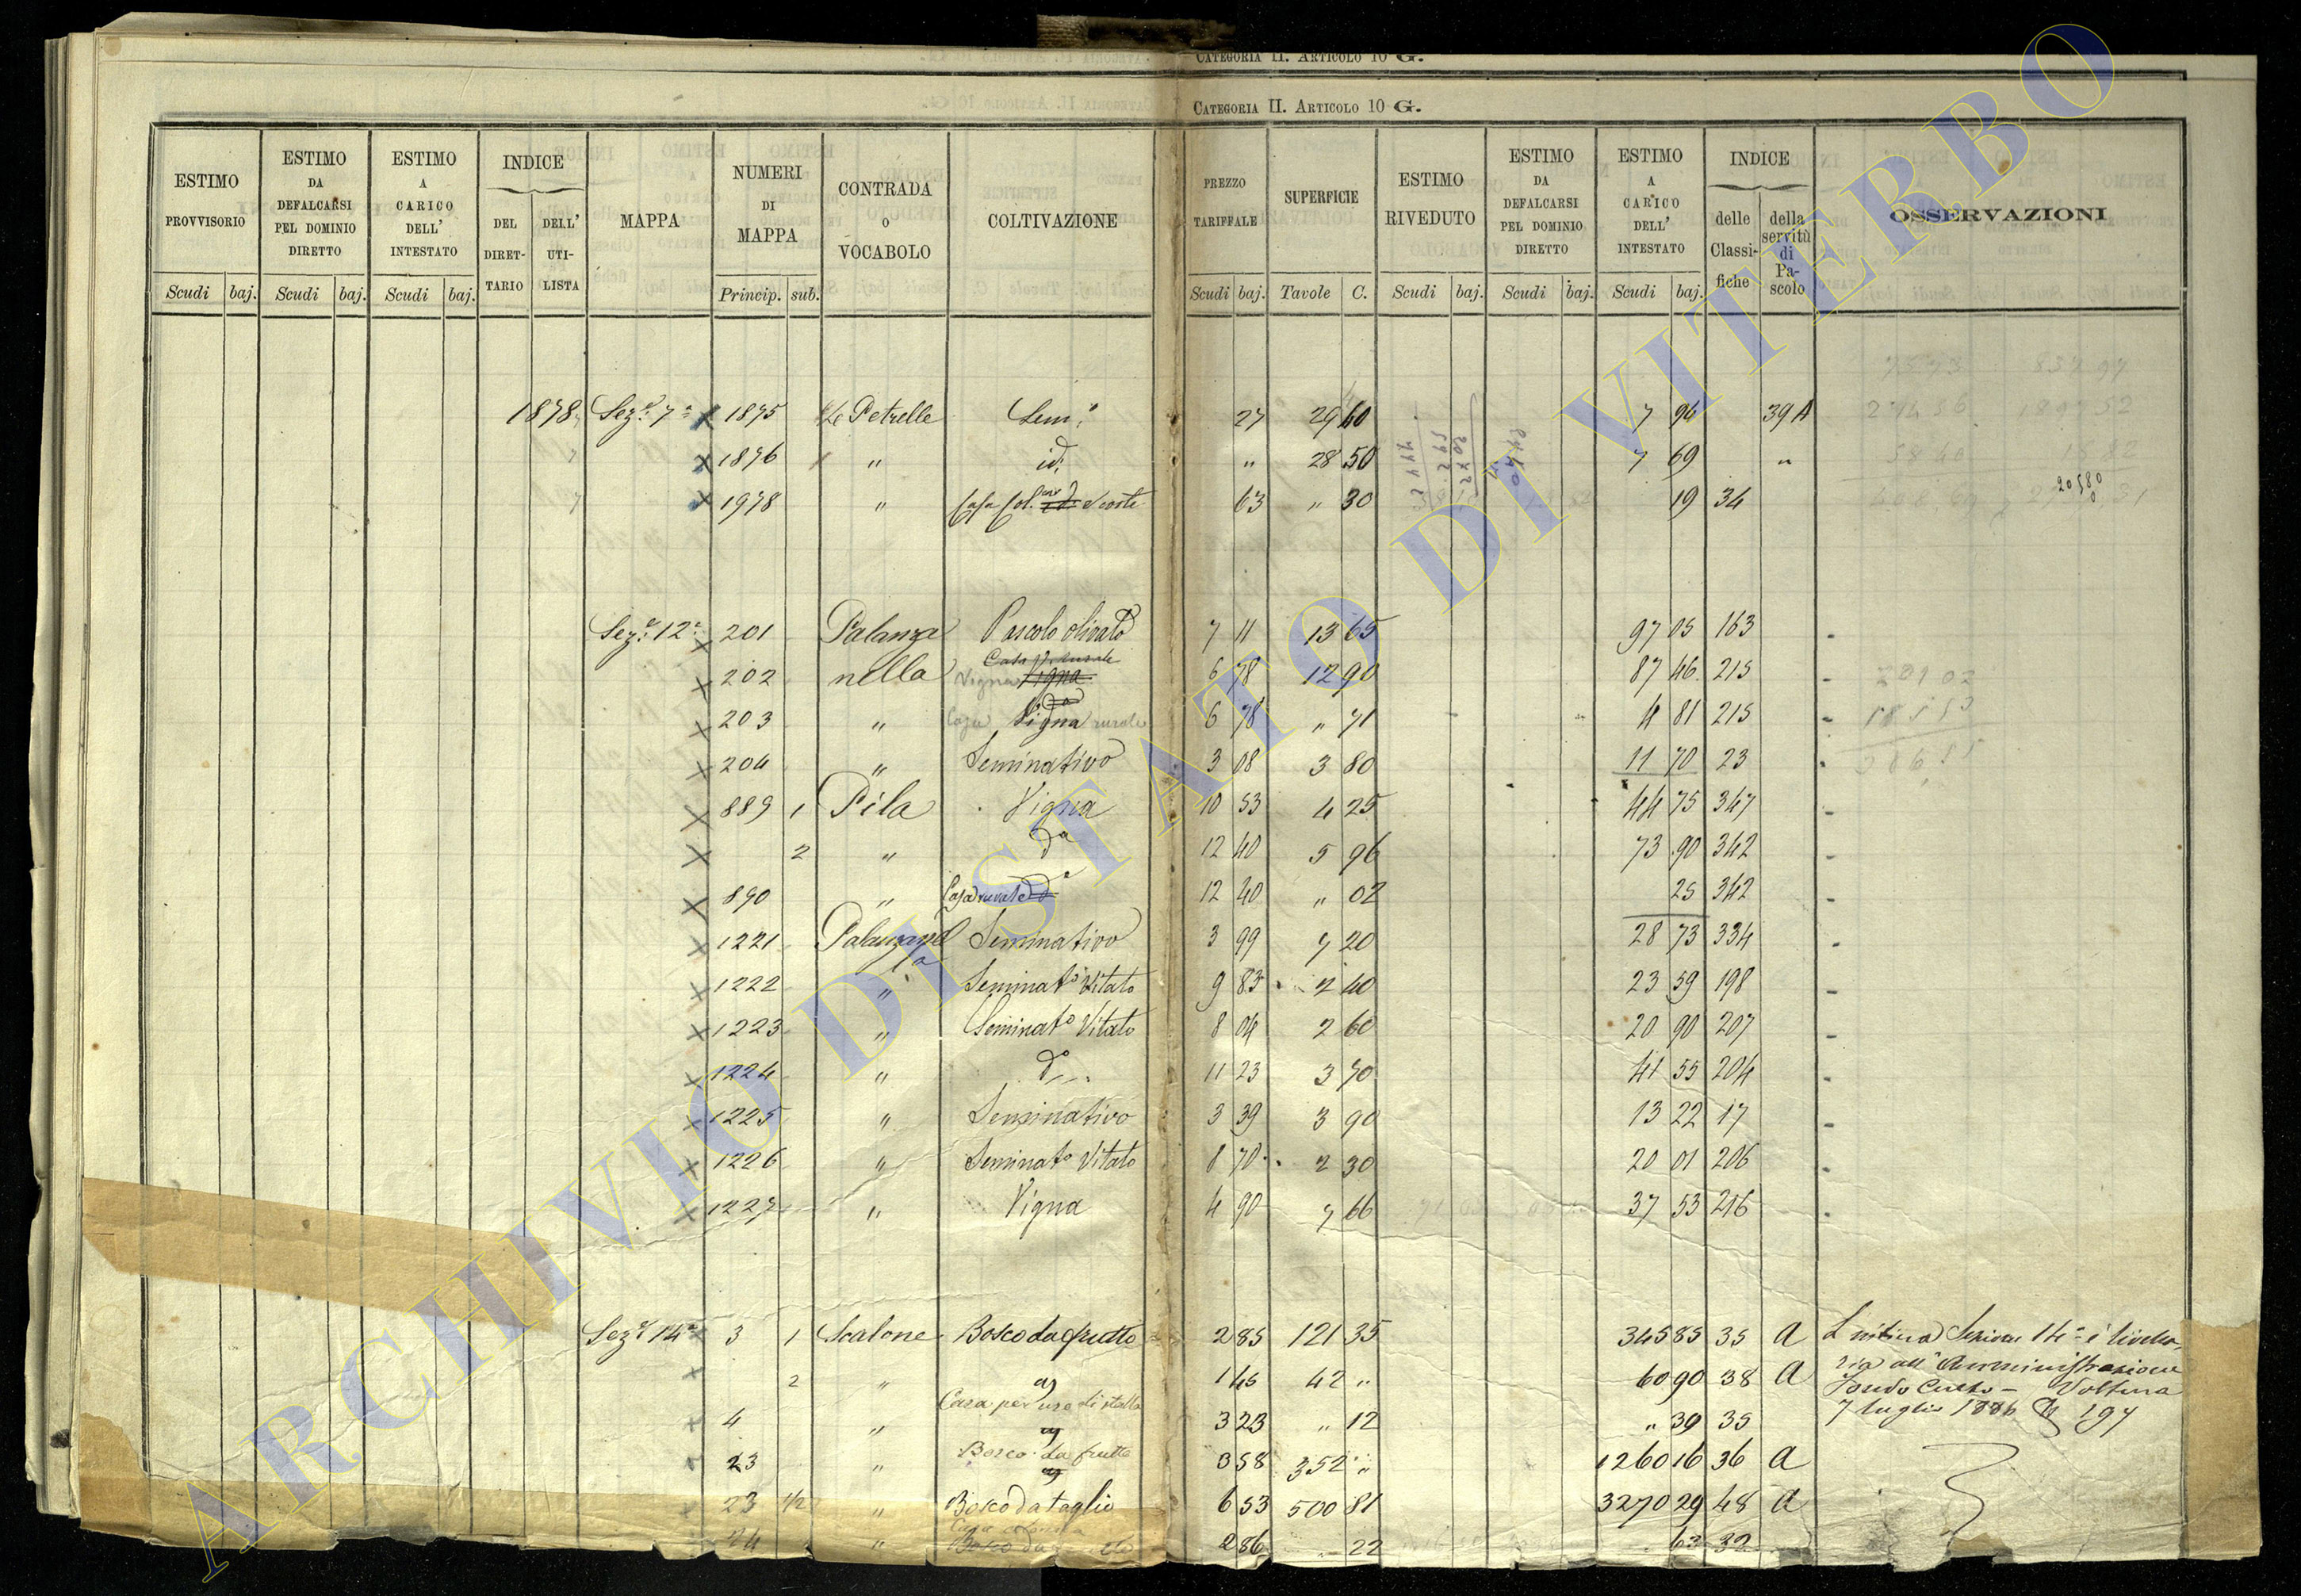 CATEGORIA II. ARTICOLO 10 G.
CATEGORIA II. ARTICOLO 10 G.
ESTIMO PROVVISORIO | ESTIMO DA DEFALCARSI PEL DOMINIO DIRETTO | ESTIMO A CARICO DELL' INTESTATO | INDICE DEL DIRET-TARIO | DELL' UTI-LISTA | MAPPA | NUMERI DI MAPPA | CONTRADA O VOCABOLO | COLTIVAZIONE | PREZZO TARIFFALE | SUPERFICIE | ESTIMO RIVEDUTO | ESTIMO DA DEFALCARSI PEL DOMINIO DIRETTO | ESTIMO A CARICO DELL' INTESTATO | INDICE delle Classi-fiche | della servitù di Pa-scolo | OSSERVAZIONI
Scudi baj. Scudi baj. Scudi baj. Princip. sub. Scudi baj. Tavole C. Scudi baj. Scudi baj. Scudi baj.
1878 Sez.e 7a 1875 Le Petrelle Sem.o 27 29 40 7 94 39 A
1876 " id. " 28 50 7 69 "
1978 " Casa Col. e corte 63 " 30 19 34
20580
Sez.e 12a 201 Palanza Pascolo olivato 7 11 13 65 97 05 163
202 nella Vigna Vigna 6 78 12 90 87 46 215
203 " Casa Vigna rurale 6 78 " 71 4 81 215
204 " Seminativo 3 08 3 80 11 70 23
889 1 Pila Vigna 10 53 4 25 44 75 347
2 " do 12 40 5 96 73 90 342
890 " Casa rurale do 12 40 " 02 25 342
1221 Palanzanella Seminativo 3 99 7 20 28 73 334
1222 " Seminato Vitato 9 83 2 40 23 59 198
1223 " Seminato Vitato 8 04 2 60 20 90 207
1224 " do 11 23 3 70 41 55 204
1225 " Seminativo 3 39 3 90 13 22 17
1226 " Seminato Vitato 8 70 2 30 20 01 206
1227 " Vigna 4 90 7 66 37 53 216
Sez.e 14a 3 1 Scalone Bosco da frutto 2 85 121 35 345 85 35 A
2 " 1 45 42 " 60 90 38 A
Casa per uso di stalla
4 " 3 23 " 12 " 39 35
Bosco da frutto
23 " 3 58 352 " 1260 16 36 A
23 1/2 " Bosco da taglio 6 53 500 81 3270 29 48 A
24 " Casa colonica 2 86 " 22 63 32
Sezione 14a è livella-
ria all' Amministrazione
Fondo Culto —
7 luglio 1886 197
ARCHIVIO DI STATO DI VITERBO